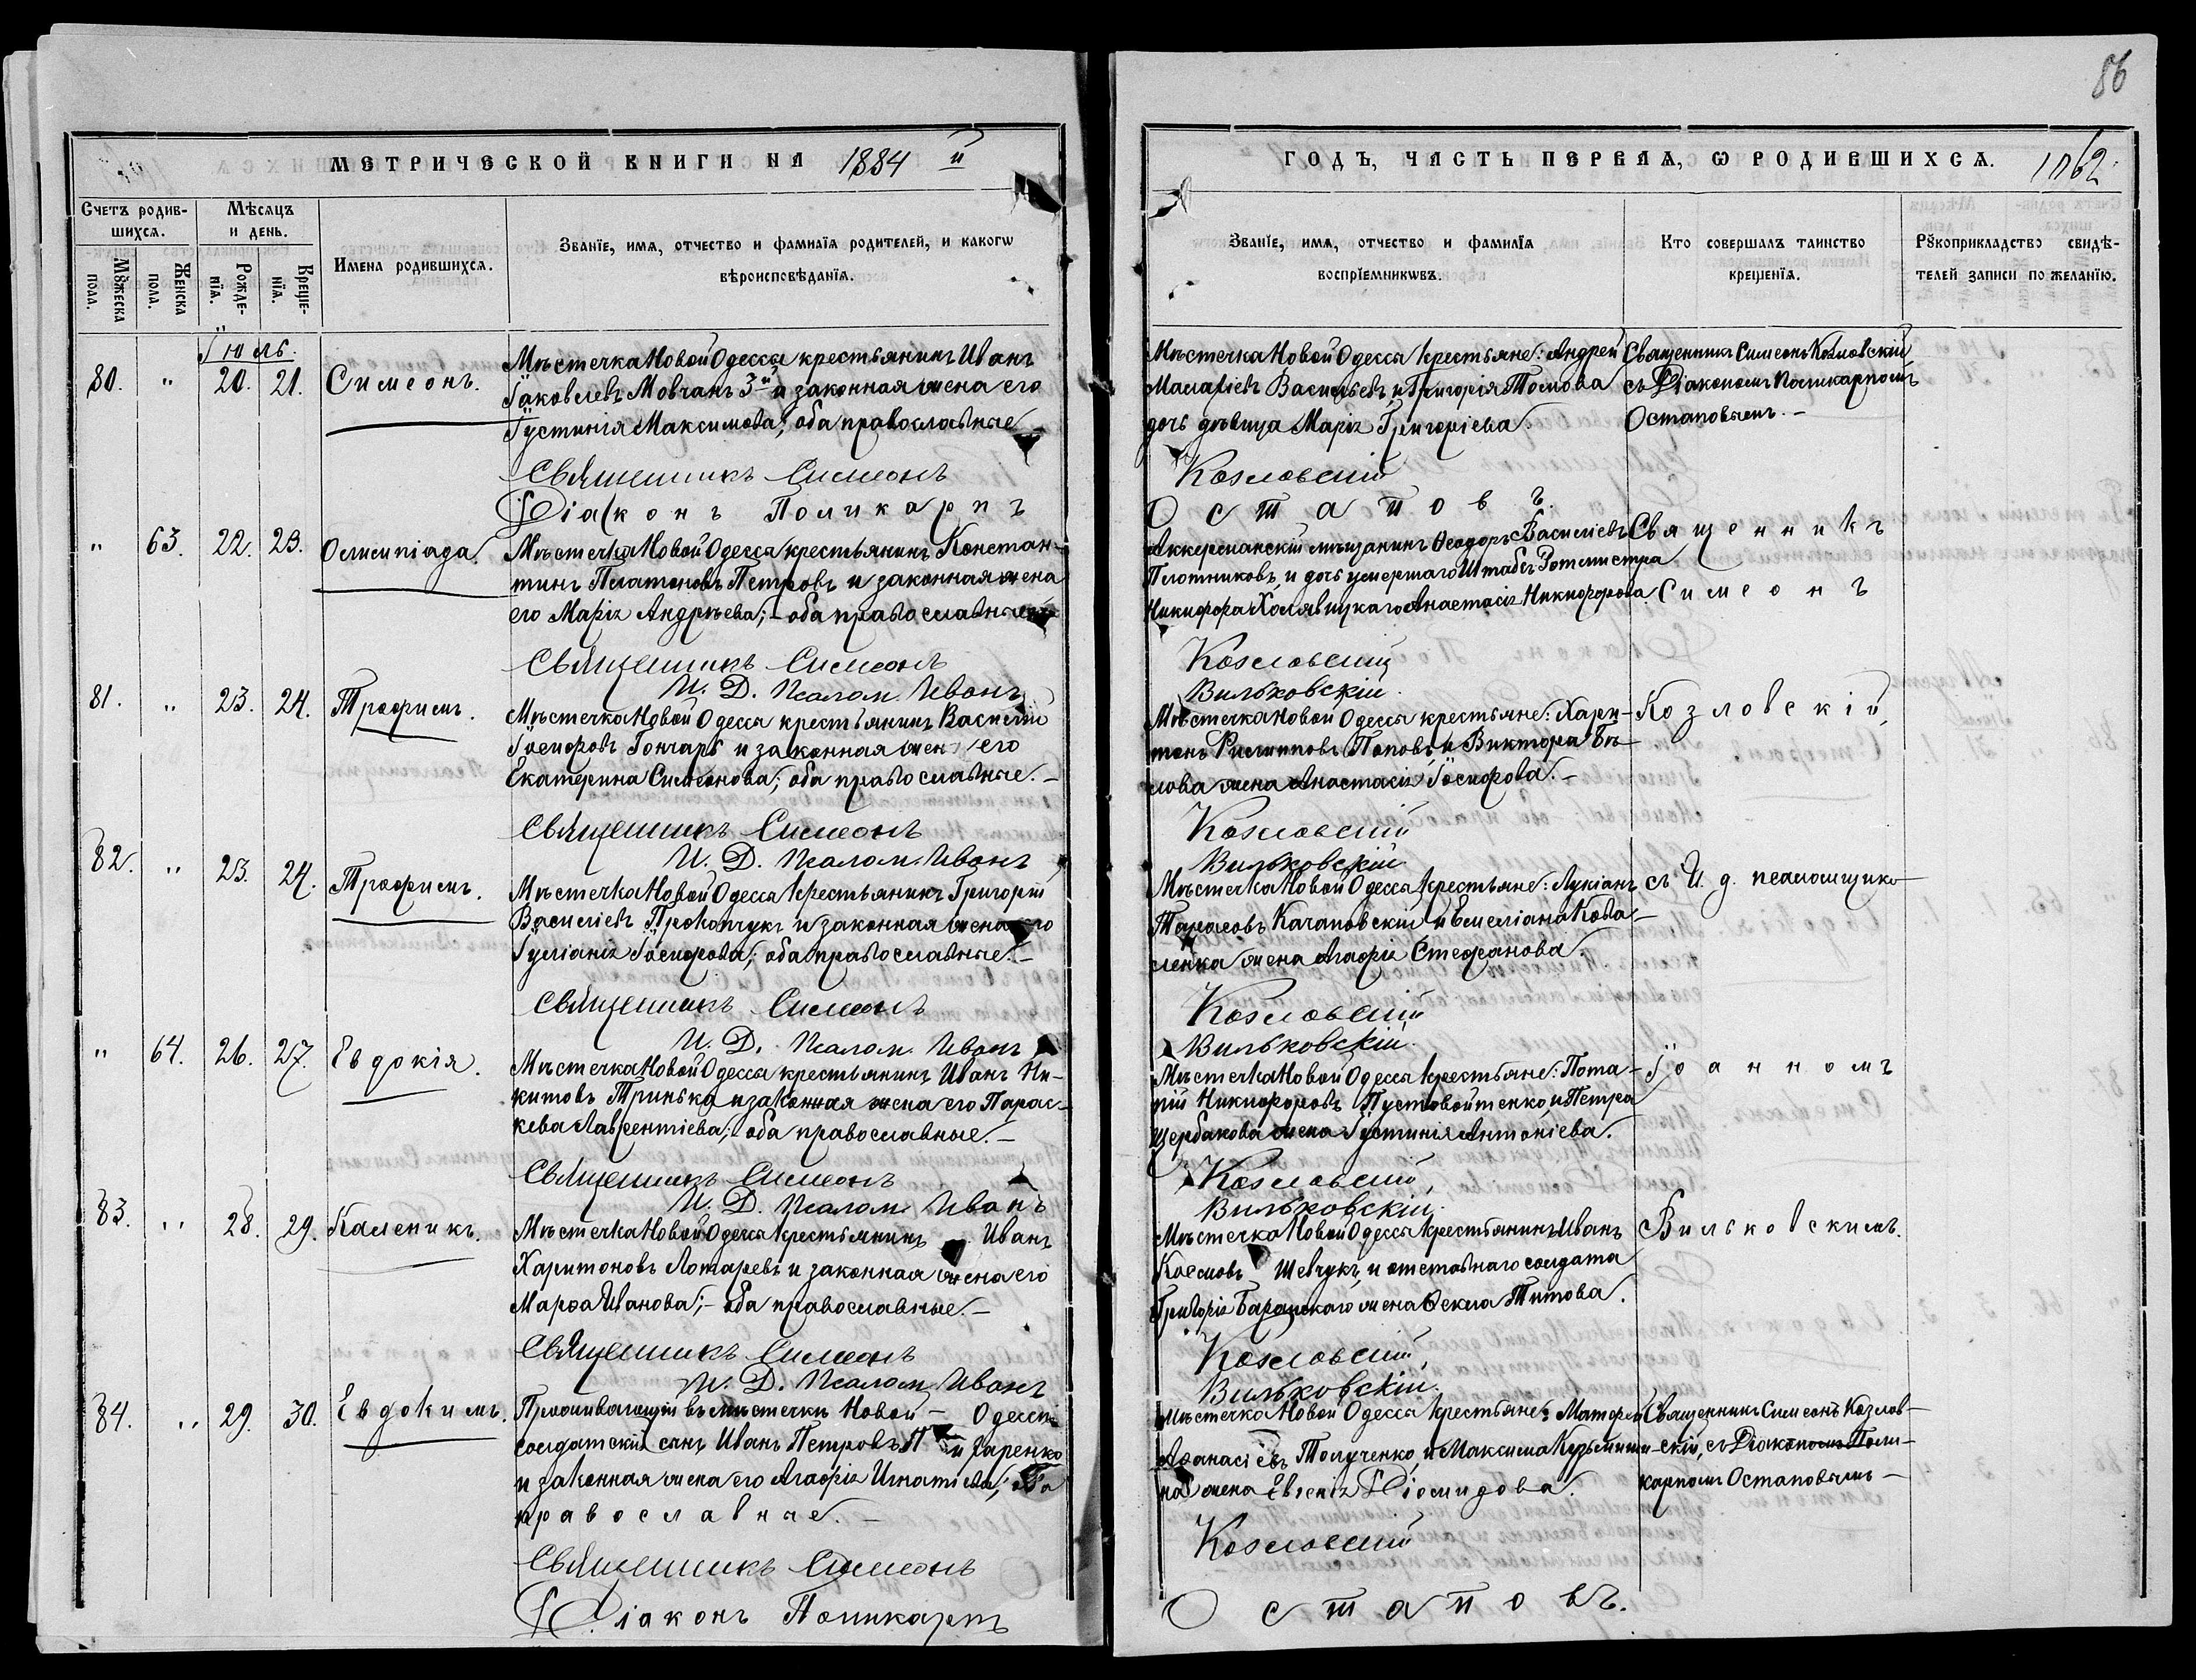 86
МЕТРИЧЕСКОЙ КНИГИ НА 1884 й
ГОДЪ, ЧАСТЬ ПЕРВАЯ, Ѡ РОДИВШИХСЯ.
Счетъ родив-
шихся.
Мѣсяцъ
и день.
Мꙋжеска пола.
Женска пола.
Рожде-
нїя.
Креще-
нїя.
Имена родившихся.
Званїе, имя, отчество и фамилїя родителей, и какогѡ
вѣроисповѣданїя.
Званїе, имя, отчество и фамилїя
воспрїемникѡвъ.
Кто совершалъ таинство
крещенїя.
Рꙋкоприкладство свидѣ-
телей записи по желанїю.
Іюль.
80. " 20. 21. Симеонъ.
Мѣстечка Новой Одессы крестьянинъ Иванъ
Іаковлевъ Мовчанъ 3й и законная жена его
Іустинія Максимова; оба православные
Священникъ Симеонъ
Діаконъ Поликарпъ
Мѣстечка Новой Одессы крестьяне: Андрей
Васильевъ, и Григорія Томова
дочь дѣвица Марія Григоріева.
Козловскій
Остаповъ.
Священникъ Симеонъ Козловскій
съ Діакономъ Поликарпомъ
Остаповымъ. -
" 63. 22. 23. Олимпіада.
Мѣстечка Новой Одессы крестьянинъ Констан-
тинъ Платоновъ Петровъ и законная жена
его Марія Андрѣева; - оба православные
Священникъ Симеонъ
И. Д. Псалом. Иванъ
Аккерманскій мѣщанинъ Ѳеодоръ Василіевъ
Плотниковъ, и дочь умершаго Штабсъ Ротмистра
Никифора Холявицкаго Анастасія Никифорова.
Козловскій
Вильковскій.
Священникъ
Симеонъ
81. " 23. 24. Трофимъ.
Мѣстечка Новой Одессы крестьянинъ Василій
Іосифовъ Гончаръ и законная жена его
Екатерина Симеонова; оба православные. -
Священникъ Симеонъ
И. Д. Псалом. Иванъ
Мѣстечка Новой Одессы крестьяне: Хари-
тонъ Филипповъ Поповъ, и Виктора Бѣ-
лова жена Анастасія Іосифова. -
Козловскій
Вильковскій
Козловскій,
82. " 23. 24. Трофимъ.
Мѣстечка Новой Одессы крестьянинъ Григорій
Василіевъ Прокопчукъ и законная жена его
Іуліанія Іосифова; оба православные. -
Священникъ Симеонъ
И. Д. Псалом. Иванъ
Мѣстечка Новой Одессы крестьяне: Лукіанъ
Тарасовъ Качановскій и Емеліана Кова-
ленка жена Агафія Стефанова.
Козловскій
Вильковскій.
съ И. д. псаломщика
" 64. 26. 27. Евдокія.
Мѣстечка Новой Одессы крестьянинъ Иванъ Ни-
китовъ Гринька и законная жена его Парас-
кева Лаврентіева; оба православные. -
Священникъ Симеонъ
И. Д. Псалом. Иванъ
Мѣстечка Новой Одессы крестьяне: Пота-
пій Никифоровъ Пустовойтенко, и Петра
Щербакова жена Іустинія Антоніева.
Козловскій,
Вильковскій.
Іоанномъ
83. " 28. 29. Каленикъ.
Мѣстечка Новой Одессы крестьянинъ Иванъ
Харитоновъ Лотаревъ и законная жена его
Марѳа Иванова; - оба православные. -
Священникъ Симеонъ
И. Д. Псалом. Иванъ
Мѣстечка Новой Одессы крестьянинъ Иванъ
Космовъ Шевчукъ, и отставнаго солдата
Григорія Баранскаго жена Ѳекла Титова.
Козловскій,
Вильковскій.
Вильковскимъ.
84. " 29. 30. Евдокимъ.
Проживающій въ мѣстечкѣ Новой - Одессѣ
солдатскій сынъ Иванъ Петровъ
и законная жена его Агафія Игнатіева; оба
православные. -
Священникъ Симеонъ
Діаконъ Поликарпъ
Мѣстечка Новой Одессы крестьяне: Матфей
Аѳанасіевъ Толученко, и Максима Кузьмини-
на жена Евгенія Діомидова.
Козловскій
Остаповъ.
Священникъ Симеонъ Козлов-
скій, съ Діакономъ Поли-
карпомъ Остаповымъ -